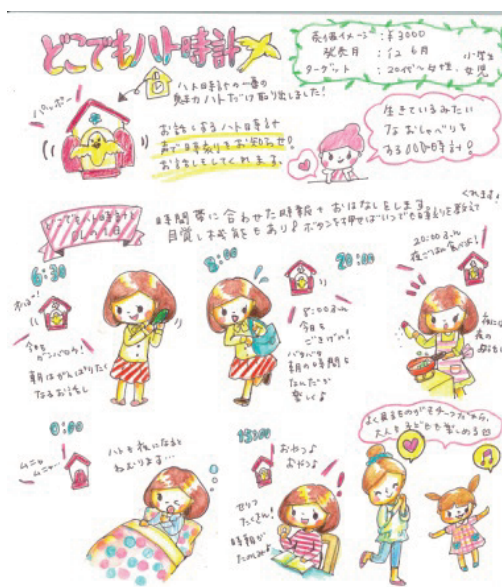 どこでもハト時計
売価イメージ：￥3000
発売月：12、6月
ターゲット：20代〜女性、女児
小学生
ハト時計の一番の
ハトだけ取り出しました！
パッポー
お話しするハト時計
声で時刻をお知らせ！
お話しもしてくれます。
生きているみたい
なおしゃべりを
する
時計！
どこでもハト時計と
OLの1日
時間帯に合わせた時報+おはなしをします。
目覚し機能もあり！ボタンを押せばいつでも時刻を教えて
くれます！
6:30
今日も
ガンバロウ！
朝はがんばりたく
なるお話し
8:00
8:00
今日も
ごきげん！
バタバタ
朝の時間も
なんだか
楽しく♪
20:00
20:00
夜ごはん
夜には
夜の
0:00
ムニャ
ムニャ
ハトも夜になると
ねむります…
15:00
おやつ♪
おやつ♪
セリフ
たくさん！
時報が
たのしみ♪
よく見るものがモチーフだから、
大人も子どもも楽しめる